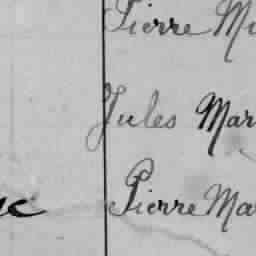 Pierre M
Jules Mar
Pierre Mar